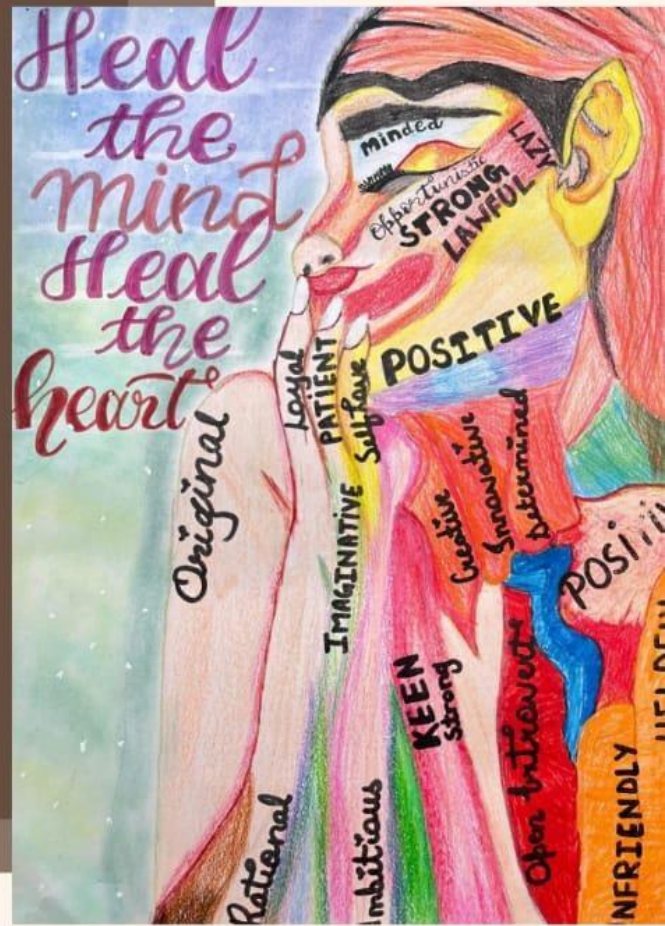 Heal
the
mind
Heal
the
heart
minded
LAZY
opportunistic
STRONG
LAWFUL
POSITIVE
Loyal
PATIENT
Self love
Original
IMAGINATIVE
Creative
Innovative
Determined
POSI
KEEN
Strong
Open Introvert
NFRIENDLY
Rational
mbitious